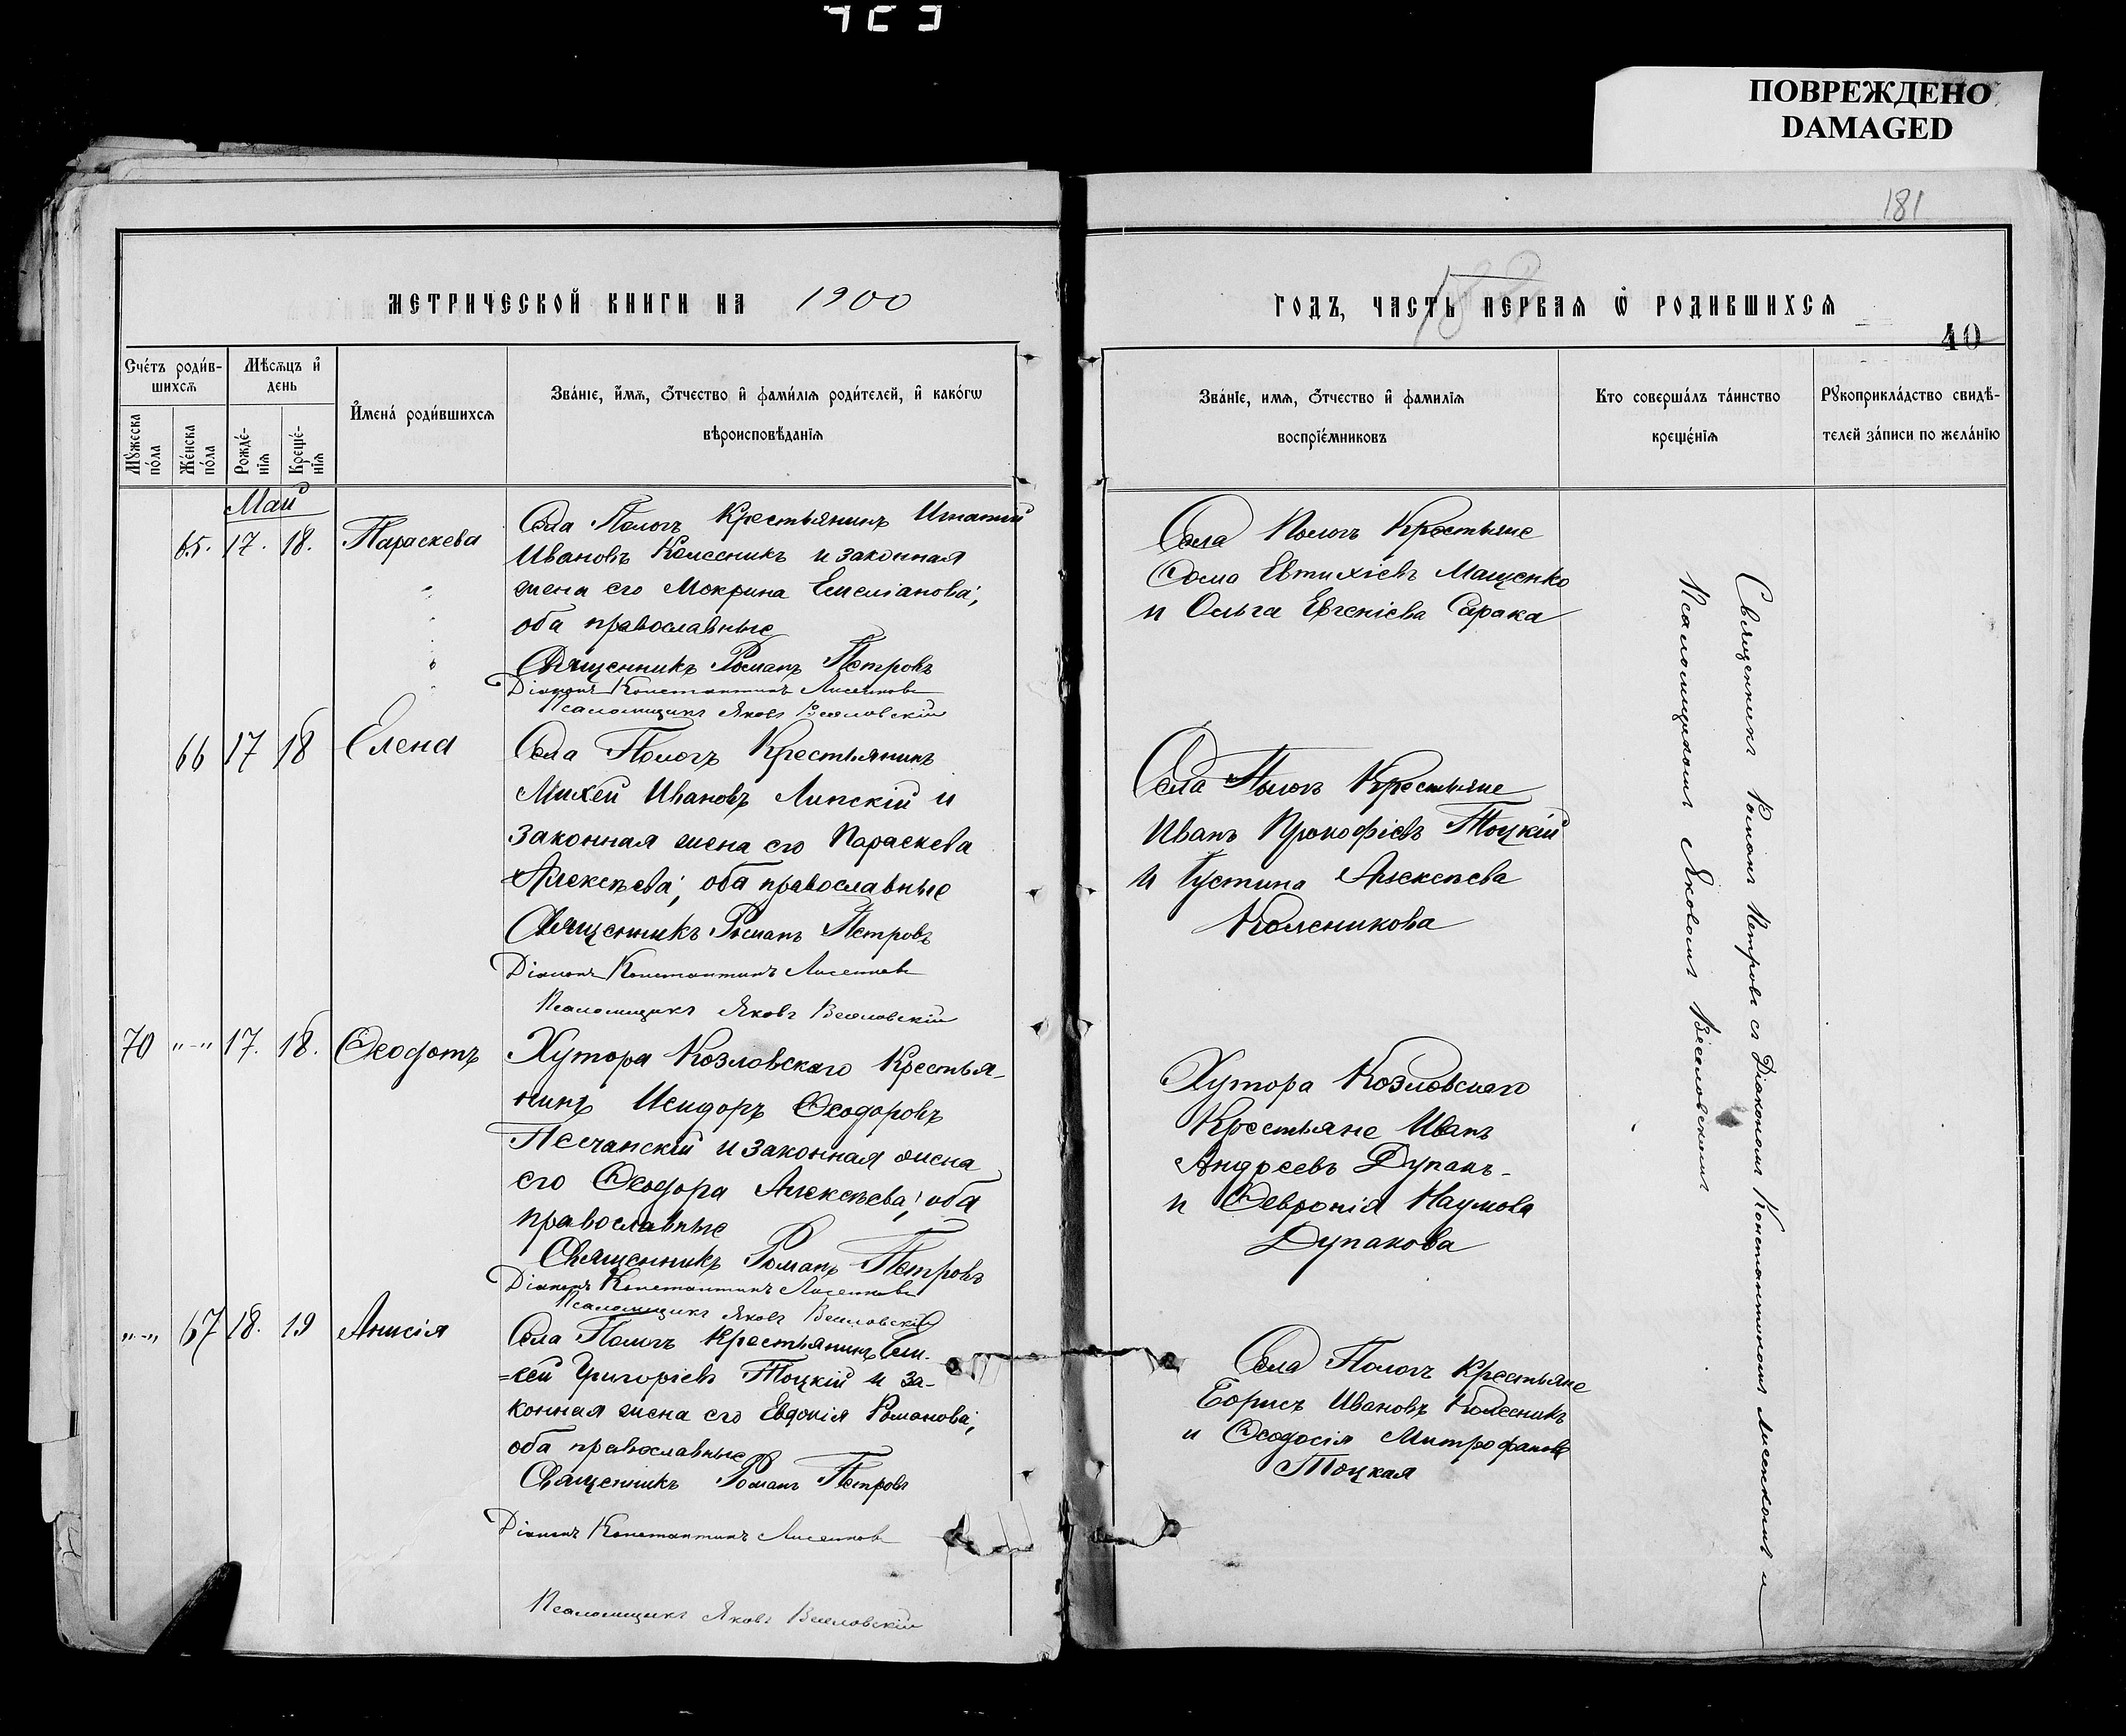 ПОВРЕЖДЕНО
DAMAGED
181
МЕТРИЧЕСКОЙ КНИГИ НА 1900
ГОДЪ, ЧАСТЬ ПЕРВАЯ Ѡ РОДИВШИХСЯ
40
Счетъ родив-
шихся
Мѣсяцъ и
день
Мужеска
пола
Женска
пола
Рожде-
нія
Креще-
нія
Имена родившихся
Званіе, имя, отчество и фамилія родителей, и какогѡ
вѣроисповѣданія
Званіе, имя, отчество и фамилія
воспріемниковъ
Кто совершалъ таинство
крещенія
Рукоприкладство свидѣ-
телей записи по желанію
Май
65. 17. 18. Параскева
Села Пологъ Крестьянинъ Игнатий
Ивановъ Колесникъ и законная
жена его Мокрина Емеліанова;
оба православные
Священникъ Романъ Петровъ
Діаконъ Константинъ Лисенков
Псаломщикъ Яковъ Веселовскій
Села Пологъ Крестьяне
Сома Евтихіевъ Мащенко
и Ольга Евгеніева Сарака
66 17 18 Елена
Села Пологъ Крестьянинъ
Михей Ивановъ Липскій и
законная жена его Параскева
Алексѣева; оба православные
Священникъ Романъ Петровъ
Діаконъ Константинъ Лисенков
Псаломщикъ Яковъ Веселовскій
Села Пологъ Крестьяне
Иванъ Прокофіевъ Тоцкій
и Іустина Алексѣева
Колесникова
70 "-" 17. 18. Ѳеодотъ
Хутора Козловскаго Крестья-
нинъ Исидоръ Ѳеодоровъ
Песчанскій и законная жена
его Ѳеодора Алексѣева; оба
православные
Священникъ Романъ Петровъ
Діаконъ Константинъ Лисенков
Псаломщикъ Яковъ Веселовскій
Хутора Козловскаго
Крестьяне Иванъ
Андреевъ Дупакъ-
и Ѳевронія Наумова
Дупакова
"-" 67 18. 19 Анисія
Села Пологъ Крестьянинъ
Григоріевъ Тоцкій и за-
конная жена его Евдокія Романова;
оба православные
Священникъ Романъ Петровъ
Діаконъ Константинъ Лисенков
Псаломщикъ Яковъ Веселовскій
Села Пологъ Крестьяне
Борисъ Ивановъ Колесникъ
и Ѳеодосія Митрофанова
Тоцкая
Священникъ Романъ Петровъ съ Діакономъ Константиномъ Лисенкомъ и
Псаломщикомъ Яковомъ Веселовскимъ